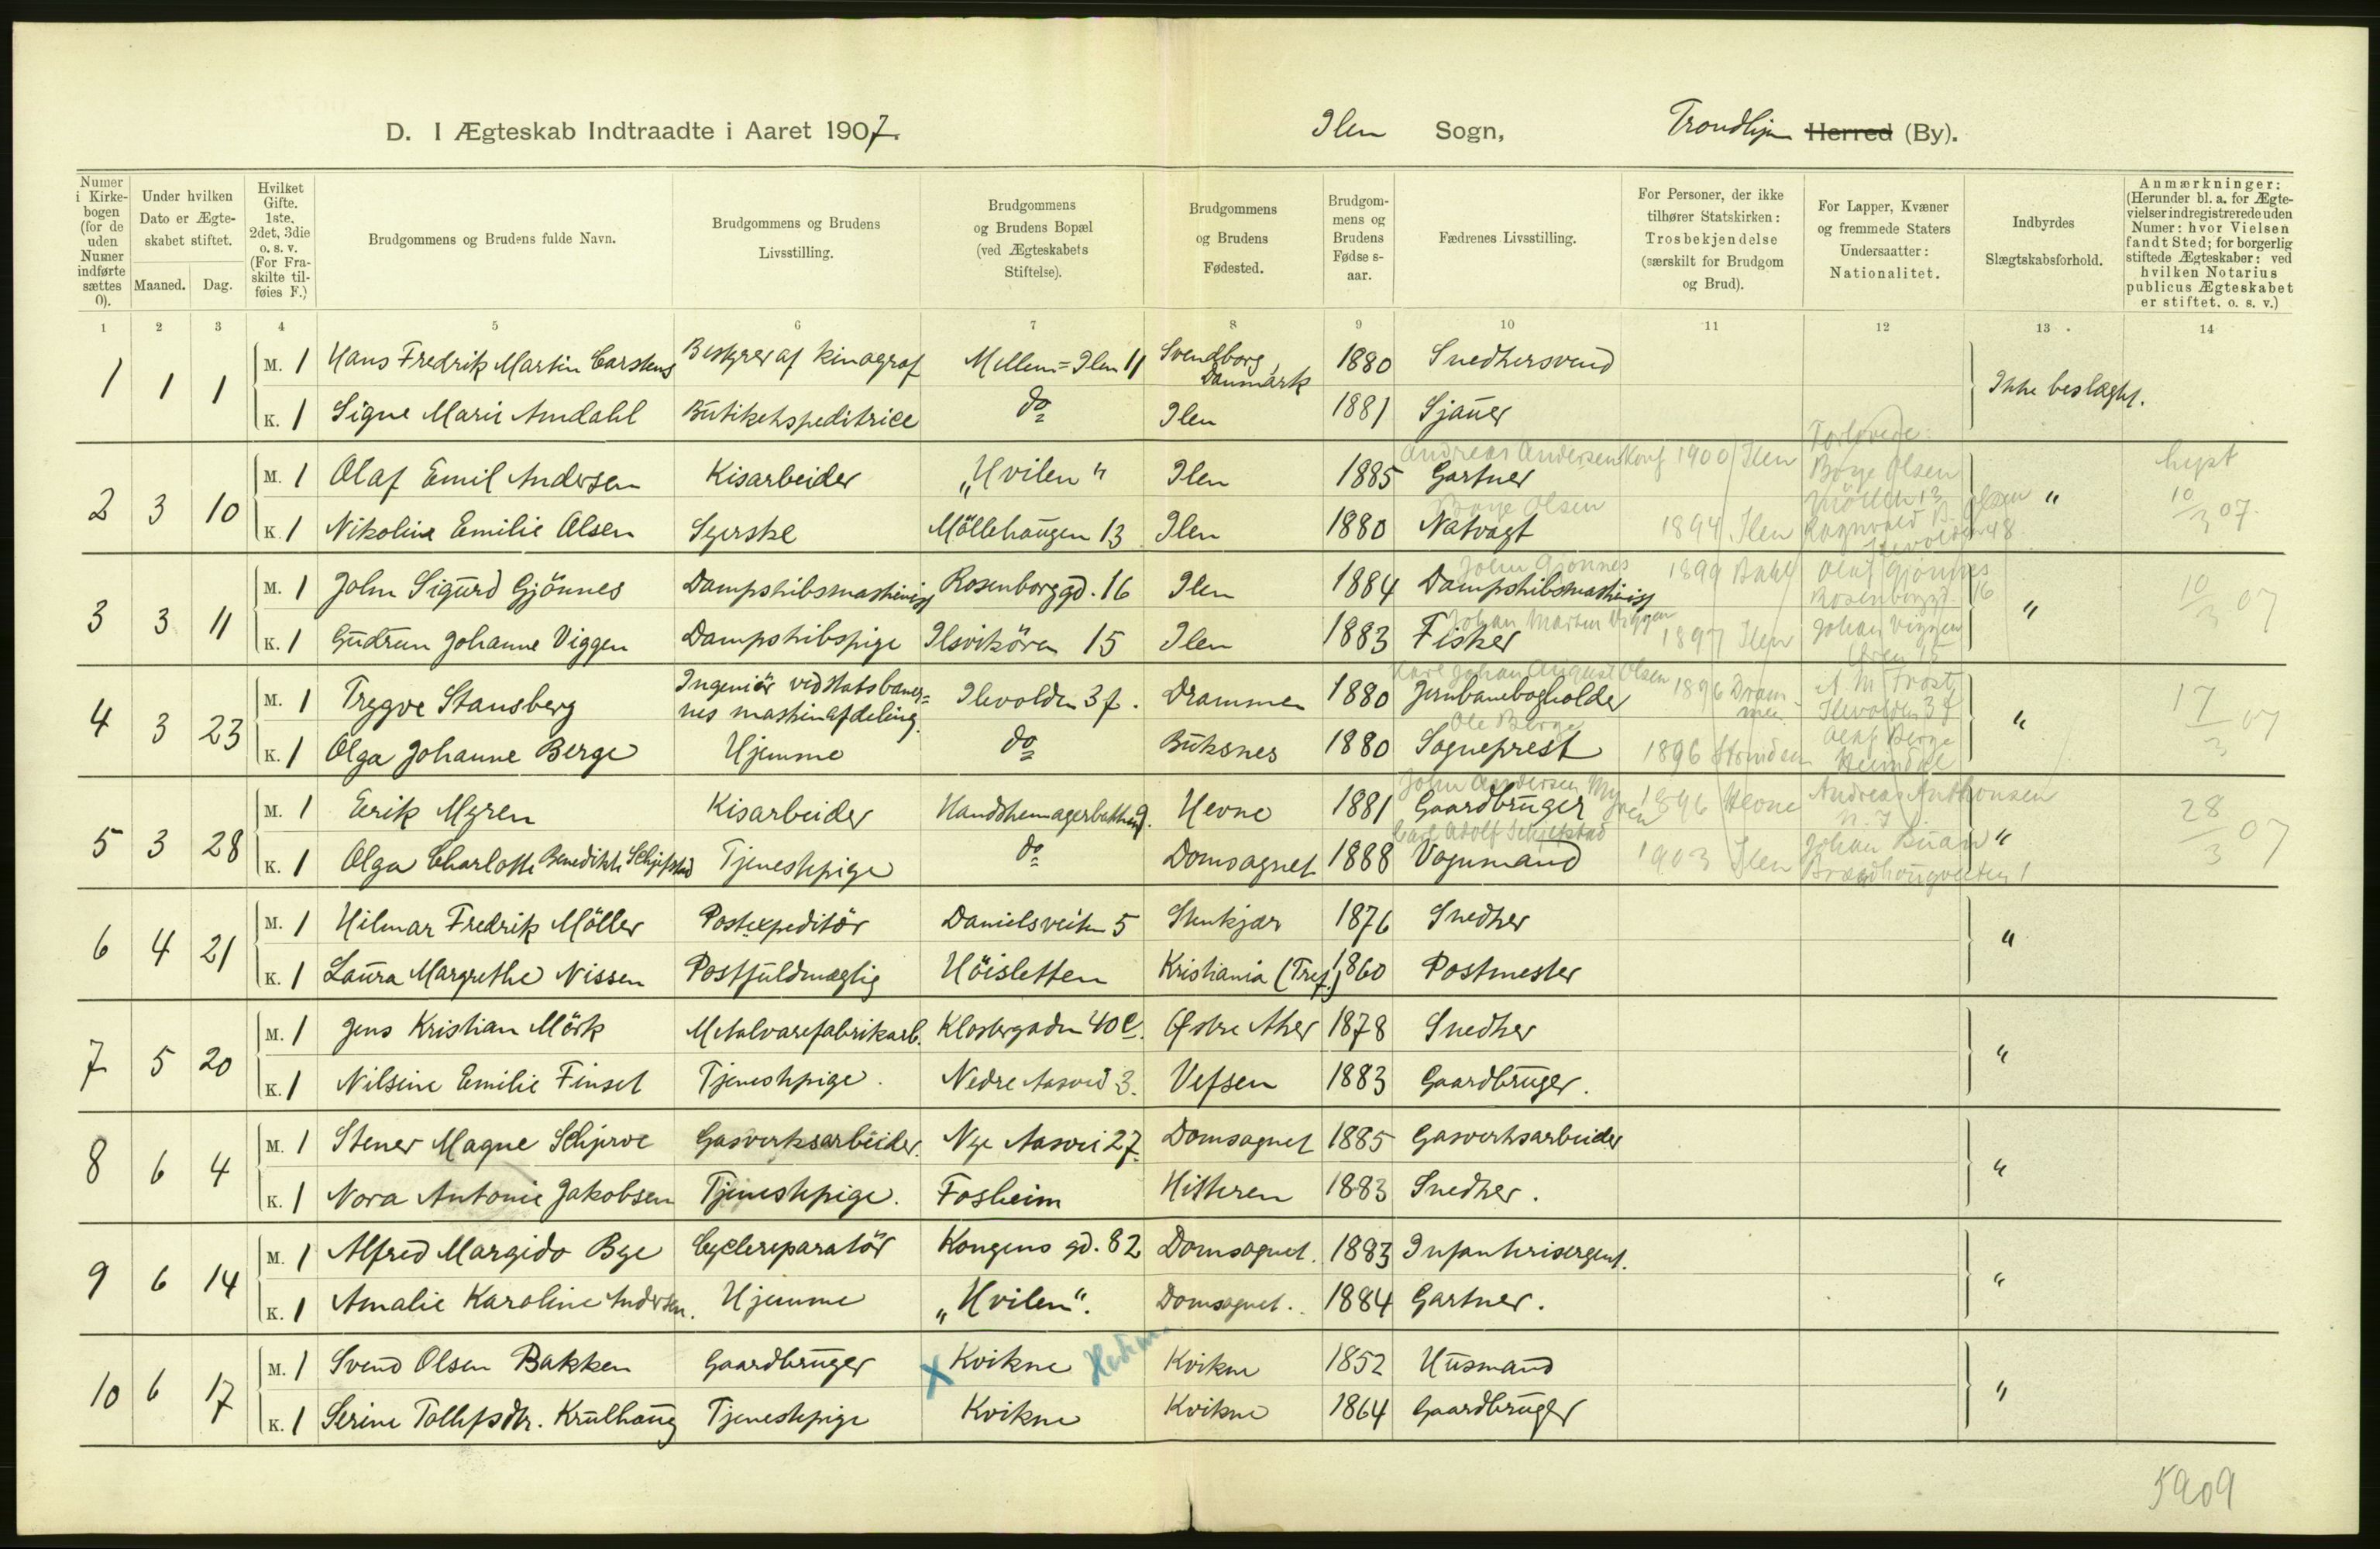 D. I Ægteskab Indtraadte i Aaret 1907. Ilen Sogn, Trondhjem Herred (By).
Numer i Kirke-bogen (for de uden Numer indførte sættes 0).
Under hvilken Dato er Ægte-skabet stiftet.
Maaned. Dag.
Hvilket Gifte. 1ste, 2det, 3die o. s. v. (For Fra-skilte til-føies F.)
Brudgommens og Brudens fulde Navn.
Brudgommens og Brudens Livsstilling.
Brudgommens og Brudens Bopæl (ved Ægteskabets Stiftelse).
Brudgommens og Brudens Fødested.
Brudgom-mens og Brudens Fødse s-aar.
Fædrenes Livsstilling.
For Personer, der ikke tilhører Statskirken: Trosbekjendelse (særskilt for Brudgom og Brud).
For Lapper, Kvæner og fremmede Staters Undersaatter: Nationalitet.
Indbyrdes Slægtskabsforhold.
Anmærkninger: (Herunder bl. a. for Ægte-vielser indregistrerede uden Numer: hvor Vielsen fandt Sted; for borgerlig stiftede Ægteskaber: ved hvilken Notarius publicus Ægteskabet er stiftet. o. s. v.)
1 2 3 4 5 6 7 8 9 10 11 12 13 14
1 1 1 M. 1 Hans Fredrik Martin Carstens Bestyrer af kinograf Mellem=Ilen 11 Svendborg, Danmark 1880 Snedkersvend Ikke beslægtet.
K. 1 Signe Marie Amdahl Butikekspeditrice do Ilen 1881 Sjauer
Forlovede:
Andreas Andersen Konf 1900 Ilen Børge Olsen
2 3 10 M. 1 Olaf Emil Andersen Kisarbeider „Hvilen" Ilen 1885 Gartner " 10/3 07.
Børge Olsen 1894 Ilen Ragnvald
K. 1 Nikoline Emilie Olsen Syerske Möllehaugen 13 Ilen 1880 Natvagt
John Gjönnes 1899 Bakl Olaf Gjönnes
3 3 11 M. 1 John Sigurd Gjönnes Dampskibsmaskinist Rosenborg gd. 16 Ilen 1884 Dampskibsmaskinist Rosenborggt. 16 " 10/3 07
Johan Martin Viggen 1897 Ilen Johan Viggen
K. 1 Gudrun Johanne Viggen Dampskibspige Ilsvikören 15 Ilen 1883 Fisker Ören 15
Karl Johan August Olsen 1896 Drammen
4 3 23 M. 1 Trygve Stansberg Ingeniör ved Statsbaner=nes maskinafdeling. Ilevolden 37. Drammen 1880 Jernbanebogholder Ilevolden 37 " 17/3 07
Ole Berge 1896 Olaf Berge
K. 1 Olga Johanne Berge Hjemme do Buksnes 1880 Sogneprest Heimdal
John Andersen Myren 1896 Hevne Andreas Anthonsen
5 3 28 M. 1 Eerik Myren Kisarbeider Hevne 1881 Gaardbruger " 28/3 07
Carl Adolf Schjefstad 1903 Ilen Johan Buan
K. 1 Olga Charlotte Benedikte Schjefstad Tjenestepige do Domsognet 1888 Vognmand
6 4 21 M. 1 Hilmar Fredrik Möller Postexpeditör Danielsveiten 5 Stenkjær 1876 Snedker "
K. 1 Laura Margrethe Nissen Postfuldmægtig Höisletten Kristiania (Tref.) 1860 Postmester
7 5 20 M. 1 Jens Kristian Mörk Metalvarefabrikarb. Klostergaden 40 c. Östre Aker 1878 Snedker "
K. 1 Nilsine Emilie Finset Tjenestepige. Nedre Aasvei 3. Vefsen 1883 Gaardbruger.
8 6 4 M. 1 Stener Magne Schjerve Gasverksarbeider. Nye Aasvei 27. Domsognet 1885 Gasverksarbeider "
K. 1 Nora Antonie Jakobsen Tjenestepige. Fosheim Hitteren 1883 Snedker.
9 6 14 M. 1 Alfred Margido Bye Cyclereparatör Kongens gd. 82 Domsognet. 1883 Infanterisergent. "
K. 1 Amalie Karoline Andersen. Hjemme „Hvilen". Domsognet. 1884 Gartner.
10 6 17 M. 1 Svend Olsen Bakken Gaardbruger X Kvikne Hedm. Kvikne 1852 Husmand "
K. 1 Serine Tollefsdtr. Krulhaug Tjenestepige Kvikne Kvikne 1864 Gaardbruger
5909